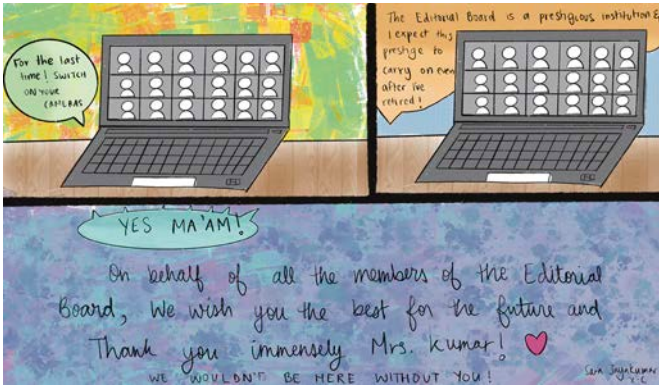 For the last
time! SWITCH
ON YOUR
CAMERAS
The Editorial Board is a prestigious institution &
I expect this
prestige to
carry on even
after I've
retired!
YES MA'AM!
On behalf of all the members of the Editorial
Board, We wish you the best for the future and
Thank you immensely Mrs. Kumar!
WE WOULDN'T BE HERE WITHOUT YOU!
Sara Jayakumar